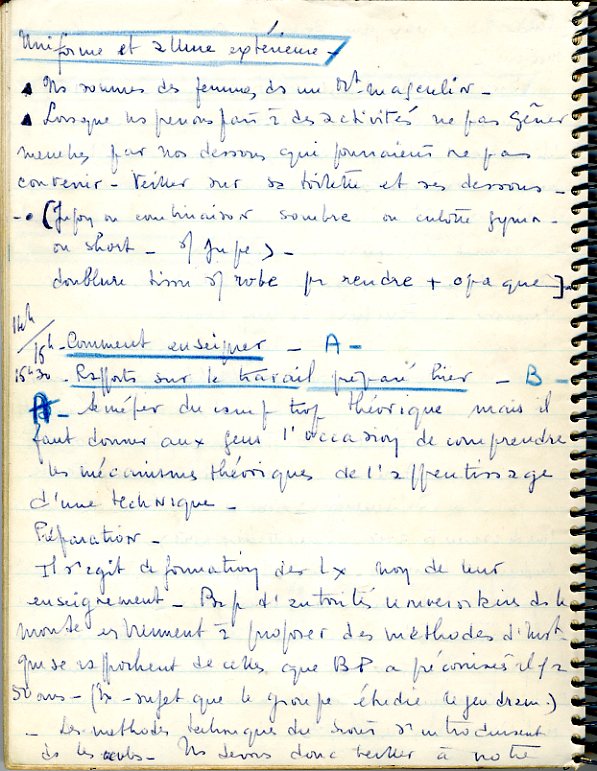 Uniforme et allure extérieure -
▲ Ns sommes des femmes ds un mvt masculin -
▲ Lorsque ns prenons part à des activités ne pas gêner
par nos dessous qui pourraient ne pas
convenir - Veiller sur sa toilette et ses dessous -
- • (Jupon ou combinaison sombre ou culotte gym -
ou short - s/ jupe) -
doublure tissu s/ robe pr rendre + opaque]
14h
/15h - Comment enseigner - A -
15h30 - Rapports sur le travail préparé hier - B -
A - se méfier du camp trop théorique mais il
faut donner aux gens l'occasion de comprendre
les mécanismes théoriques de l'apprentissage
d'une technique -
Préparation -
Il s'agit de formation des Lx non de leur
enseignement - Bcp d'autorités universitaires ds le
monde en viennent à proposer des méthodes d'inst.
qui se rapprochent de celles que BP a préconisées il y a
50 ans - ( - sujet que le groupe étudie le jeu dram.)
- Les méthodes techniques du scout s'introduisent
ds les écoles - Ns devons donc veiller à notre